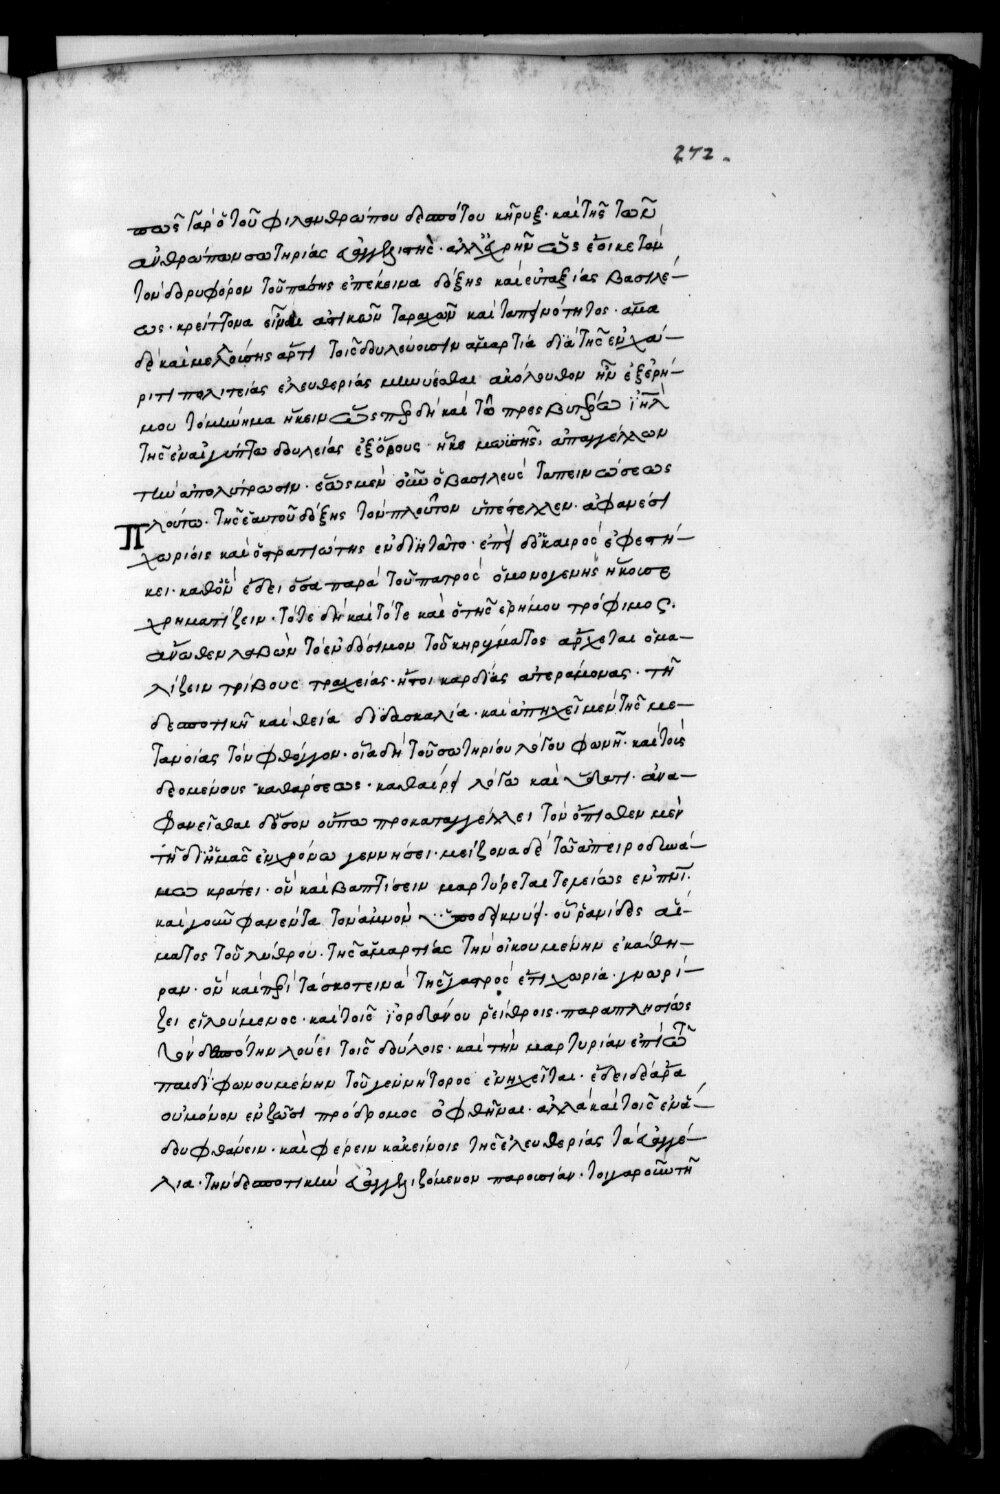 272.
πως γὰρ ὁ τοῦ φιλανθρώπου δεσπότου κῆρυξ· καὶ τῆς τῶν
ἀνθρώπων σωτηρίας εὐαγγελιστὴς· ἀλλ' ἐχρῆν ὡς ἔοικε τὸν
τὸν δορυφόρον τοῦ πάσης ἐπέκεινα δόξης καὶ εὐταξίας βασιλέ-
ως· κρείττονα εἶναι ταραχῶν καὶ ταπεινότητος· ἅμα
δὲ καὶ ἄρτι τοῖς δουλεύουσιν ἁμαρτία διὰ τῆς ἐν χά-
ριτι πολιτείας ἐλευθερίας ἀκόλουθον ἦν ἐξ ἐρή-
μου τὸ μήνυμα ἥκειν ὥσπερ δὴ καὶ τῷ πρεσβυτέρω ἰηλ
τῆς ἐν αἰγύπτω δουλείας ἐξ ὄρους ἧκε μωϋσῆς, ἀπαγγέλλων
τὴν ἀπολύτρωσιν· ἕως μὲν οὖν ὁ βασιλεὺς ταπεινώσεως
πλούτω· τῆς ἑαυτοῦ δόξης τὸν πλοῦτον ὑπέστελλεν· ἀφανέσι
χωρίοις καὶ ὁ στρατιώτης ἐνδιητᾶτο· ἐπεὶ δ' ὁ καιρὸς ἐφεστή-
κει· καθ' ὃν ἔδει ὅσα παρὰ τοῦ πατρὸς ὁ μονογενὴς ἤκουσε
χρηματίζειν· τότε δὴ καὶ τότε καὶ ὁ τῆς ἐρήμου τρόφιμος.
ἄνωθεν λαβὼν τὸ ἐνδόσιμον τοῦ κηρύγματος ἄρχεται ὁμα-
λίζειν τρίβους τραχείας· ἤτοι καρδίας ἀτεράμονας· τῆ
δεσποτικῆ καὶ θεία διδασκαλία· καὶ ἀπηχεῖ μὲν τῆς με-
τανοίας τὸν φθόγγον· οἷα δὴ τοῦ σωτηρίου λόγου φωνὴ· καὶ τοὺς
δεομένους καθάρσεως· καθαίρει λόγω καὶ ὕδατι· ἀνα-
φανεῖσθαι δ' ὅσον οὔπω προκαταγγέλλει τὸν ὄπισθεν μὲν
τῆ δι' ἡμᾶς ἐν χρόνω γεννήσει· μείζονα δὲ τῶ ἀπειροδυνά-
μω κράτει· ὃν καὶ βαπτίσειν μαρτύρεται τελείως ἐν πνι·
καὶ γοῦν φανέντα τὸν ἀμνὸν ὑποδείκνυσι· οὗ ῥανίδες αἵ-
ματος τοῦ λύθρου· τῆς ἁμαρτίας τὴν οἰκουμένην ἐκάθη-
ραν· ὃν καὶ περὶ τὰ σκοτεινὰ τῆς γαστρὸς ἔτι χωρία· γνωρί-
ζει εἰλούμενος· καὶ τοῖς ἰορδάνου ῥείθροις· παραπλησίως
τὸν δεσπότην λούει τοῖς δούλοις· καὶ τὴν μαρτυρίαν ἐπὶ τῶ
παιδὶ φωνουμένην τοῦ γεννήτορος ἐνηχεῖται· ἔδει δὲ ἄρα
οὐ μόνον ἐν ζῶσι πρόδρομος ὀφθῆναι· ἀλλὰ καὶ τοῖς ἐν ἅ-
δου φθάνειν· καὶ φέρειν κἀκείνοις τῆς ἐλευθερίας τὰ εὐαγγέ-
λια· τὴν δεσποτικὴν εὐαγγελιζόμενον παρουσίαν· τοιγαροῦν τῆ